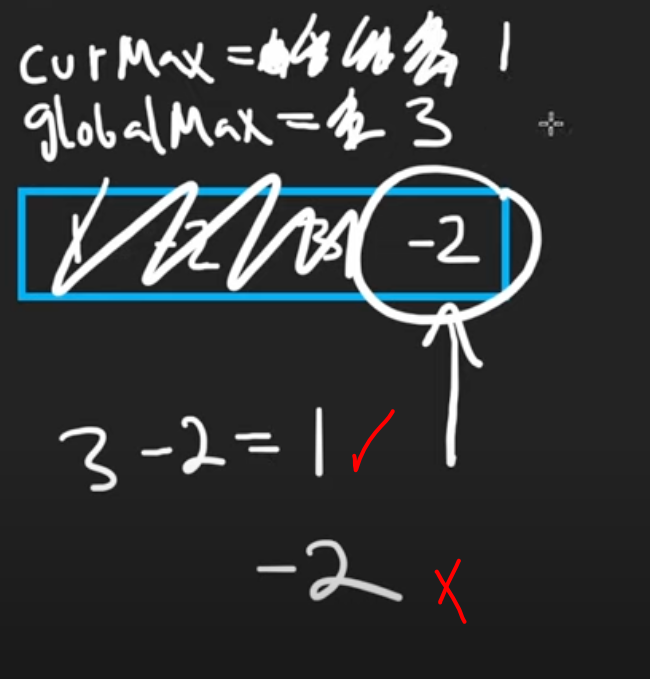 curMax = 1
globalMax = 3
-2
3 - 2 = 1 ✓
-2 x